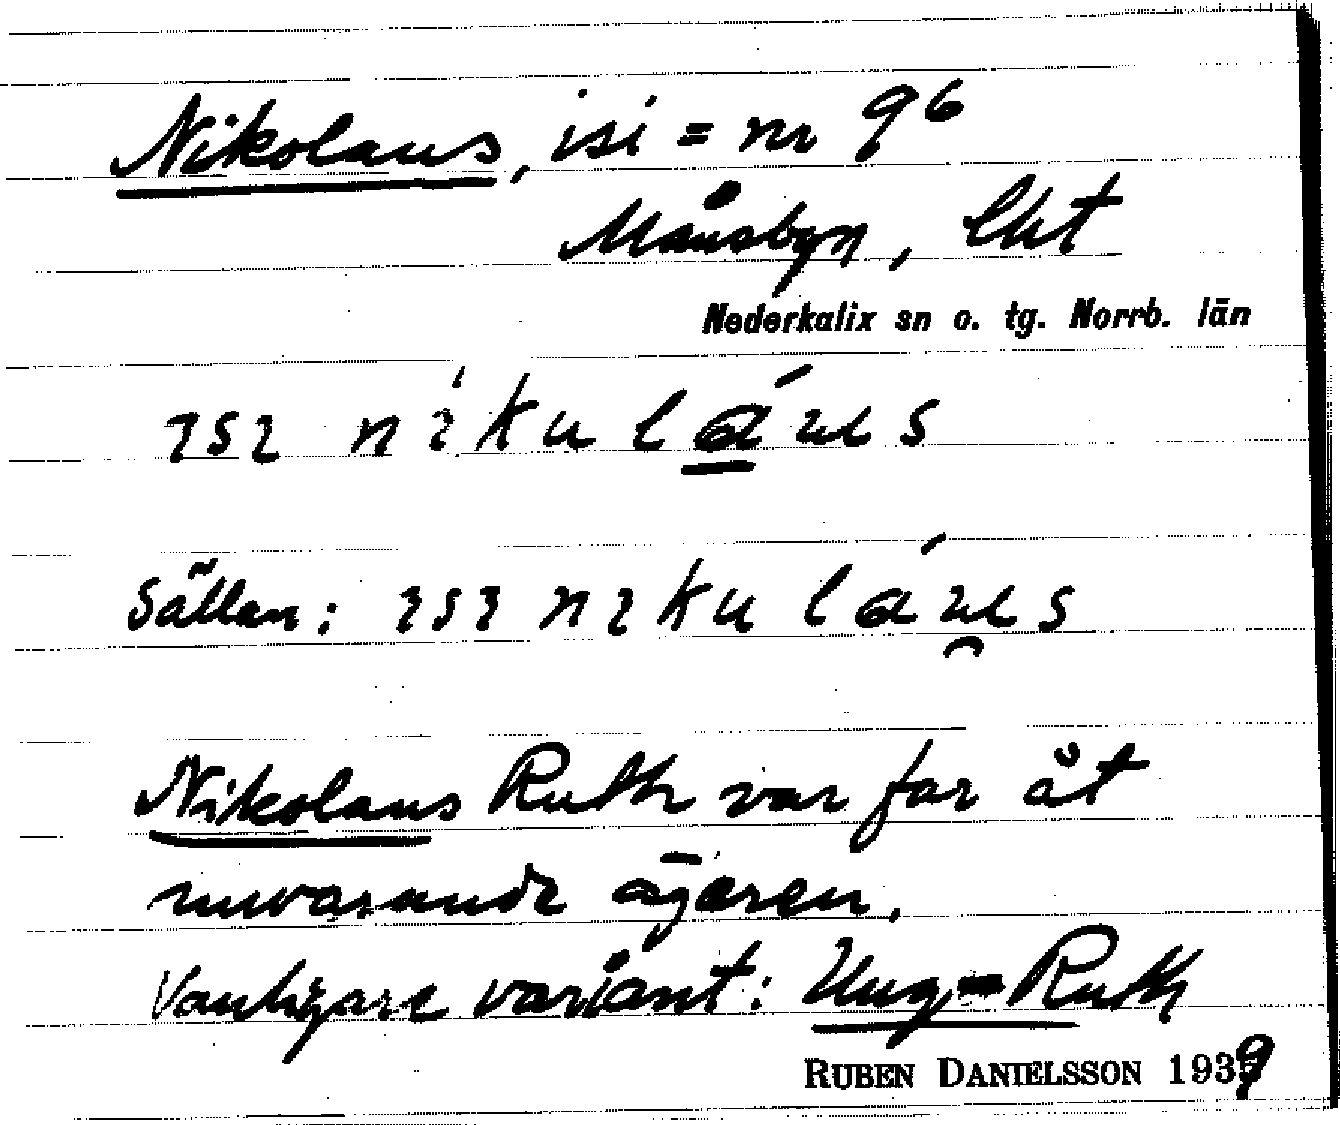 Nikolaus, isi = nr 96
Månsbyn, lht
Nederkalix sn o. tg. Norrb. län
ɪsɪ nɪ́kuláus
Sällan: ɪsɪ nɪkuláu̯s
Nikolaus Ruth var far åt
nuvarande ägaren.
Vanligare variant: Ung-Ruth
RUBEN DANIELSSON 1939